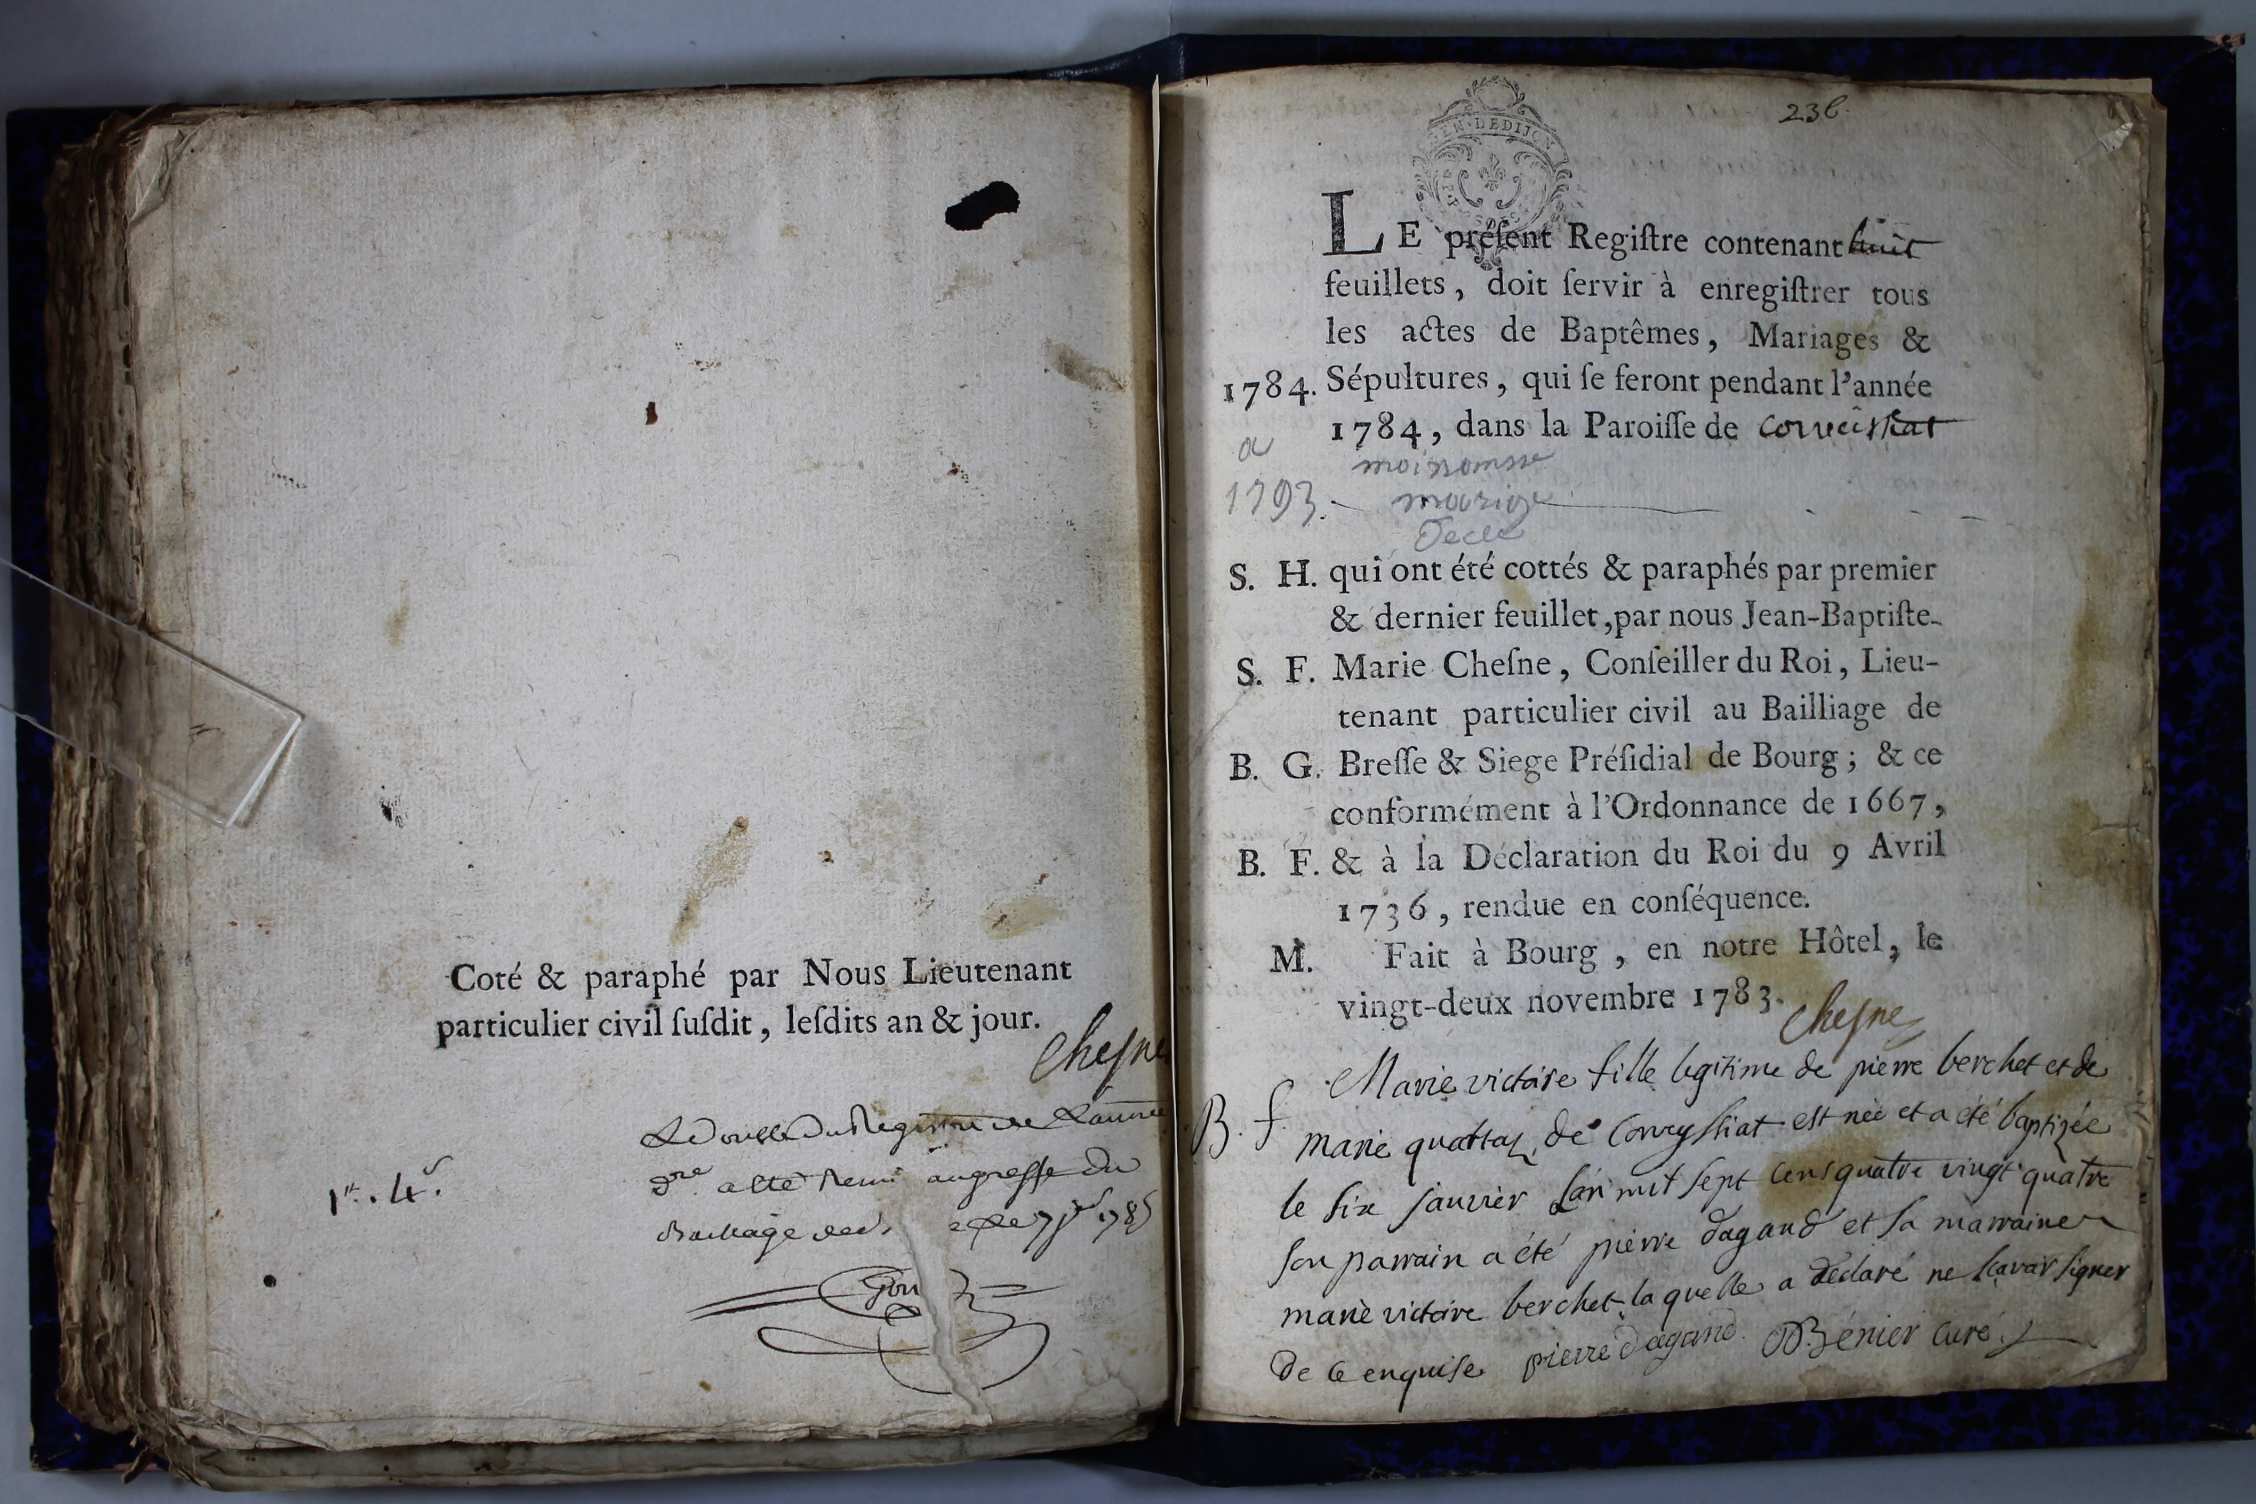 Coté & paraphé par Nous Lieutenant
particulier civil ſuſdit, leſdits an & jour.
Cheſne
Le double du Registre de L'année
dre a été remi au greffe du
Bailliage 1785
1tt. 4s.
236.
EN. DE DIJON
LE préſent Regiſtre contenant huit
feuillets, doit ſervir à enregiſtrer tous
les actes de Baptêmes, Mariages &
1784. Sépultures, qui ſe feront pendant l'année
1784, dans la Paroiſſe de Corveissiat
a
1793.
mariage
S. H. qui ont été cottés & paraphés par premier
& dernier feuillet, par nous Jean-Baptiſte-
S. F. Marie Cheſne, Conſeiller du Roi, Lieu-
tenant particulier civil au Bailliage de
B. G. Breſſe & Siege Préſidial de Bourg; & ce
conformément à l'Ordonnance de 1667,
B. F. & à la Déclaration du Roi du 9 Avril
1736, rendue en conſéquence.
M. Fait à Bourg, en notre Hôtel, le
vingt-deux novembre 1783.
Cheſne
Marie victoire fille legitime de pierre berchet et de
B. f. marie quattaz de Corveyssiat est née et a été baptizée
le six janvier L'an mil sept cens quatre vingt quatre
son parrain a été pierre dagand et sa marraine
marie victoire berchet laquelle a declaré ne scavoir signer
de ce enquise pierre dagand. Bénier Curé